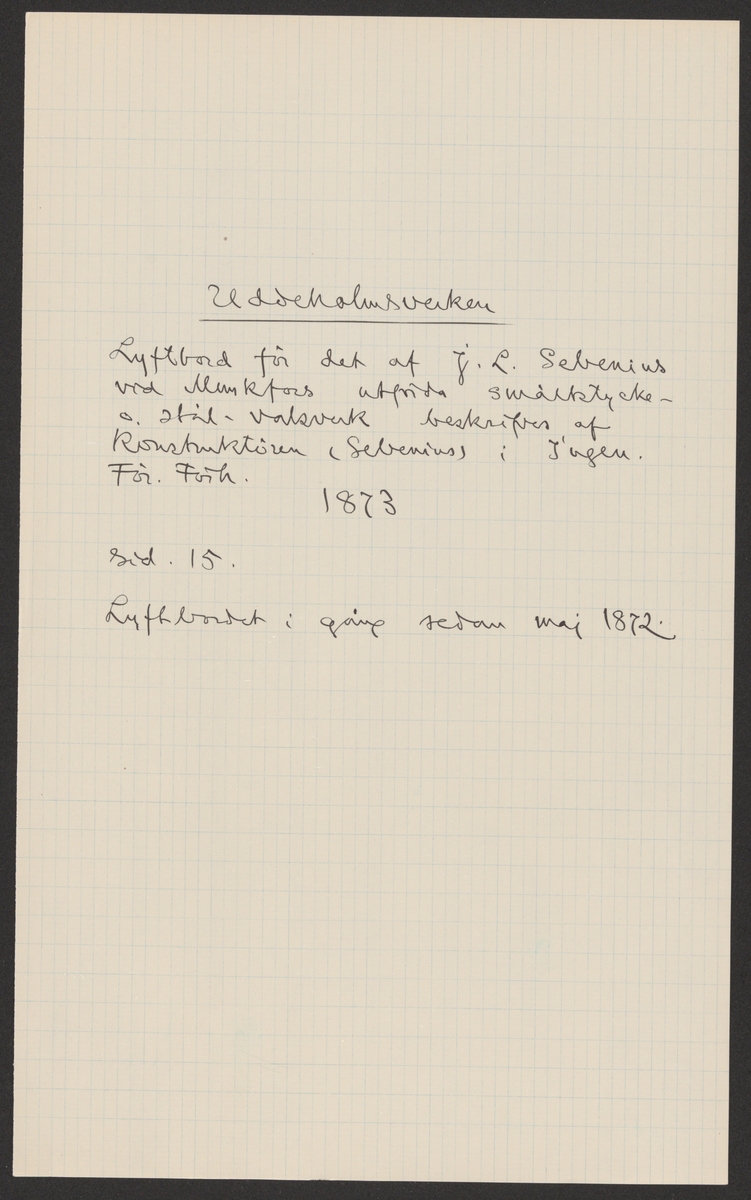 Uddeholmsverken
Lyftbord för det af J. L. Sebenius
vid Munkfors utförda smältstycke-
o. stål-valsverk beskrifves af
Konstruktören (Sebenius) i Ingen.
För. Förh.
1873
sid. 15.
Lyftbordet i gång sedan maj 1872.